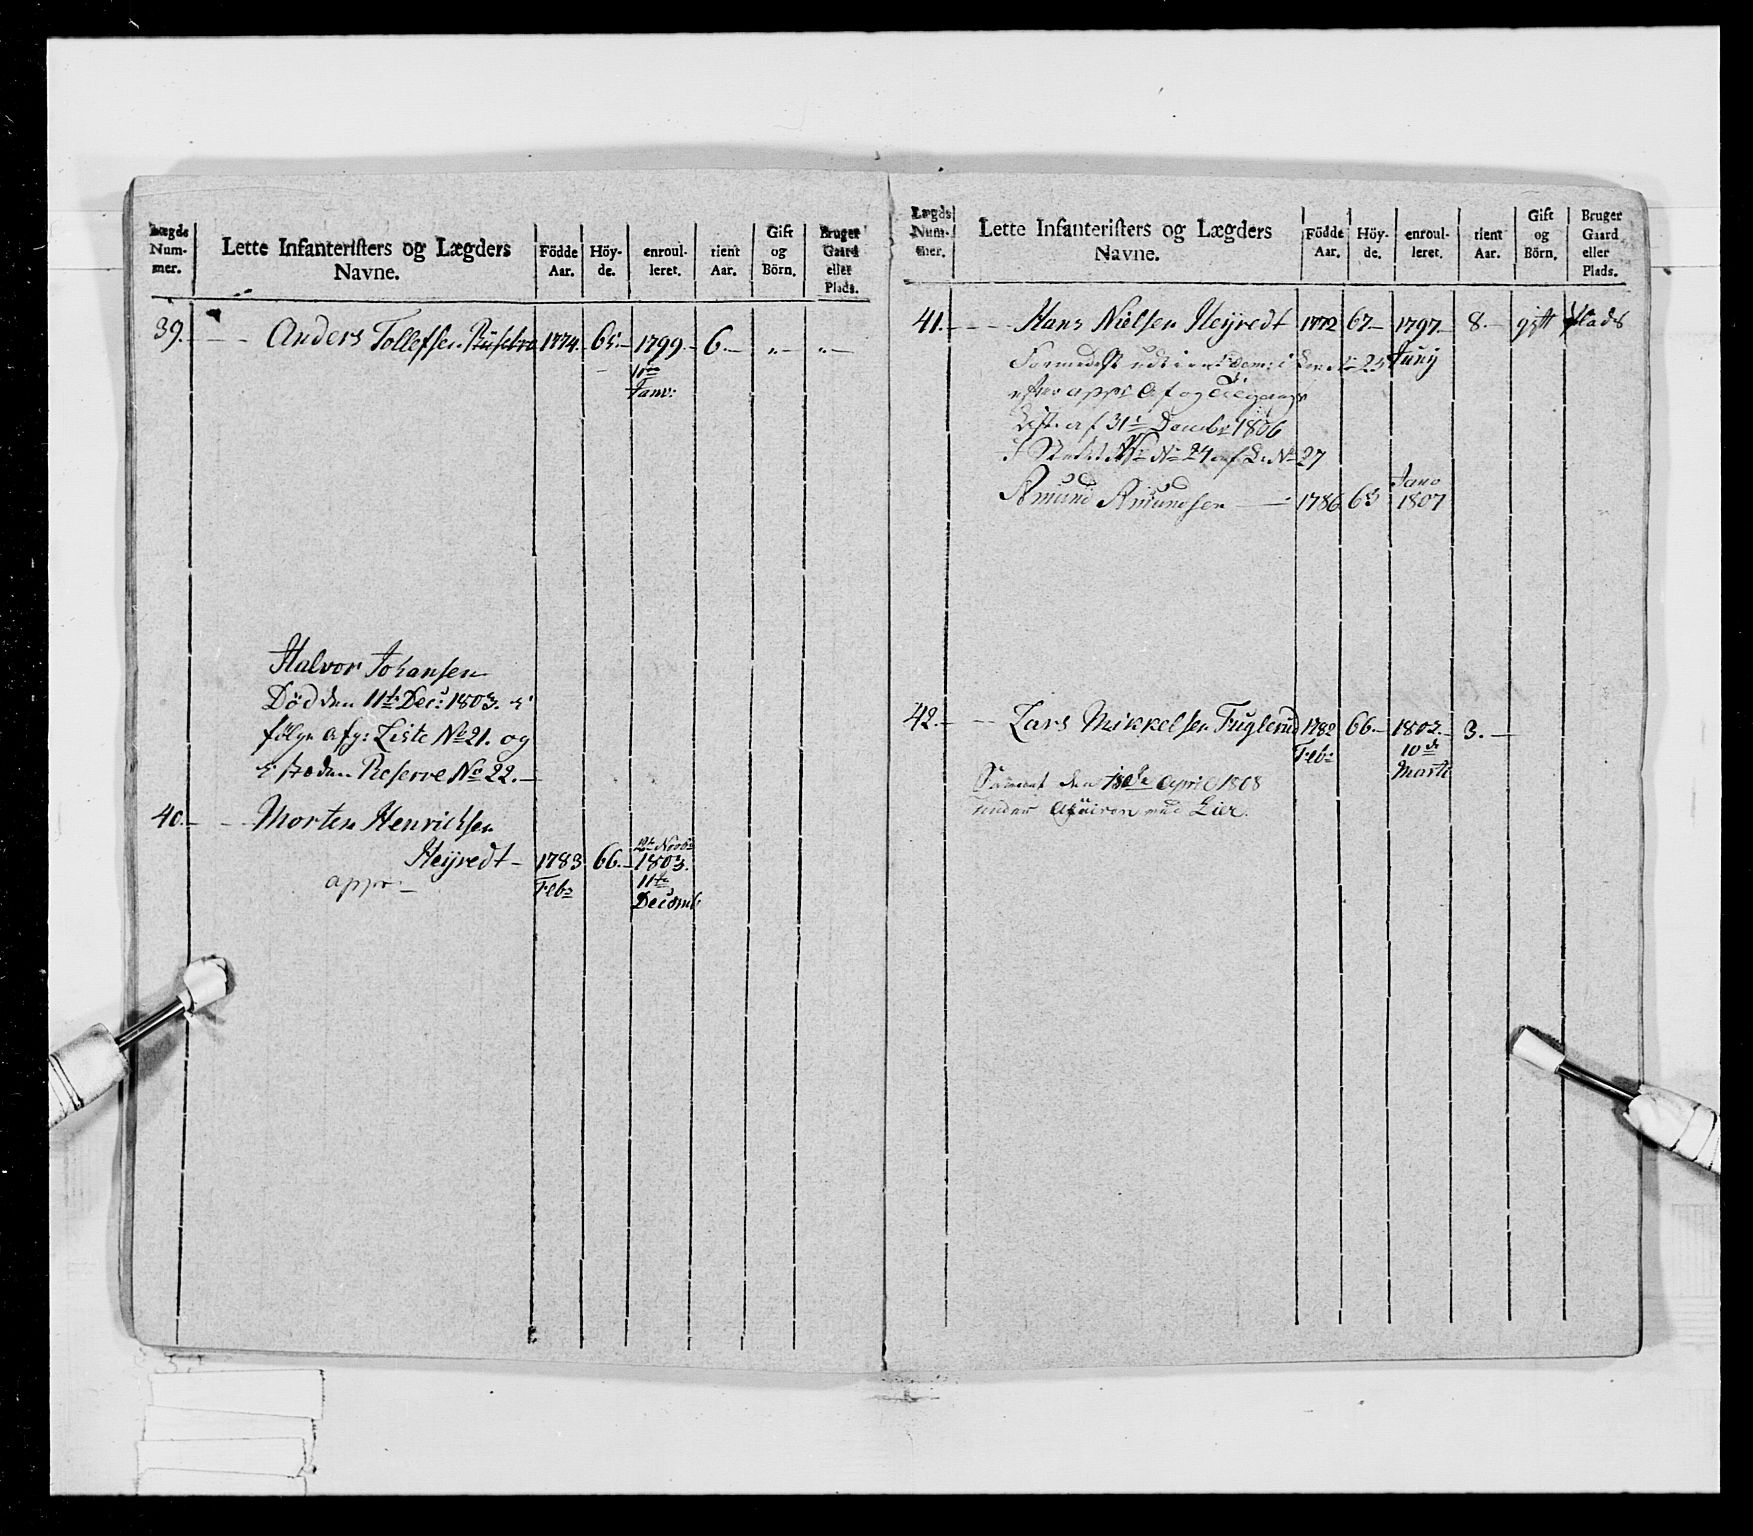 Lægds Num- mer. Lette Infanteristers og Lægders Navne. Födde Aar. Höy- de. enroul- leret. tient Aar. Gift og Börn. Bruger Gaard eller Plads.
39. Anders Tollefsen 1774. 65. 1799. 6.
Janv:
Halvor Johansen
Död den 11te Dec: 1803.
följe Afg: Liste No 21. og
Reserve No 22.
40. Morten Henrichsen
Heyredt 1783 66. 1803.
appr: Feb 11te
Decemb
Lægds Num- mer. Lette Infanteristers og Lægders Navne. Födde Aar. Höy- de. enroul- leret. tient Aar. Gift og Börn. Bruger Gaard eller Plads.
41. Hans Nielsen Heyredt 1772 67. 1797. 8. gift Plads
Juny
og Tilgangs
Liste af 31te Decembr 1806
No 24 af No 27
Janv
Amund Amundsen 1786 63 1807
42. Lars Mikkelsen Fuglerud 1782 66. 1802. 3.
Feb 10de
Marti
den April 1808
under ved Lier.